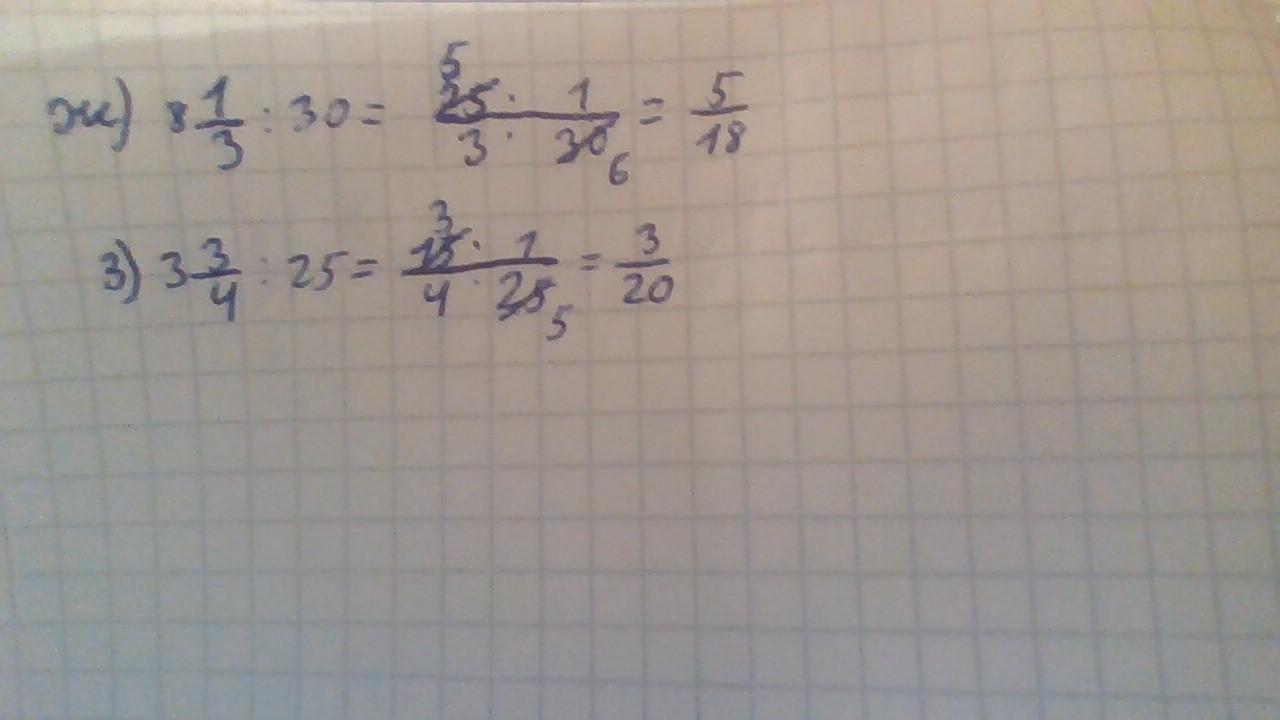 ж) 8 1/3 : 30 = 5 25 · 1 / 3 · 30 6 = 5/18
з) 3 3/4 : 25 = 3 15 · 1 / 4 · 25 5 = 3/20